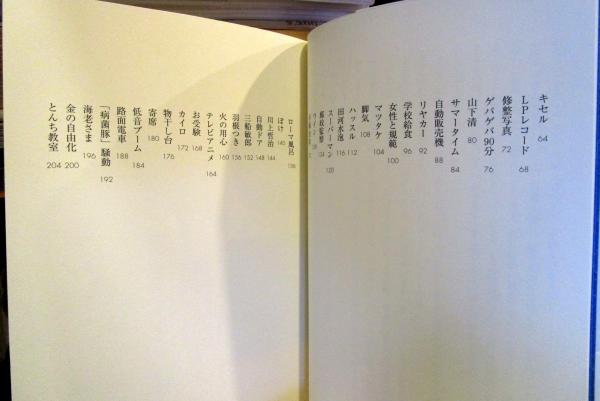 キセル 64
LPレコード 68
修整写真 72
ゲバゲバ90分 76
山下清 80
サマータイム 84
自動販売機 88
リヤカー 92
学校給食 96
女性と規範 100
マツタケ 104
脚気 108
ハッスル 112
田河水泡 116
スーパーマン 120
ローマ風呂 136
ぼけ 140
川上哲治 144
自動ドア 148
三船敏郎 152
羽根つき 156
火の用心 160
テレビアニメ 164
お受験 168
カイロ 172
物干し台 176
寄席 180
低音ブーム 184
路面電車 188
「病菌豚」騒動 192
海老さま 196
金の自由化 200
とんち教室 204